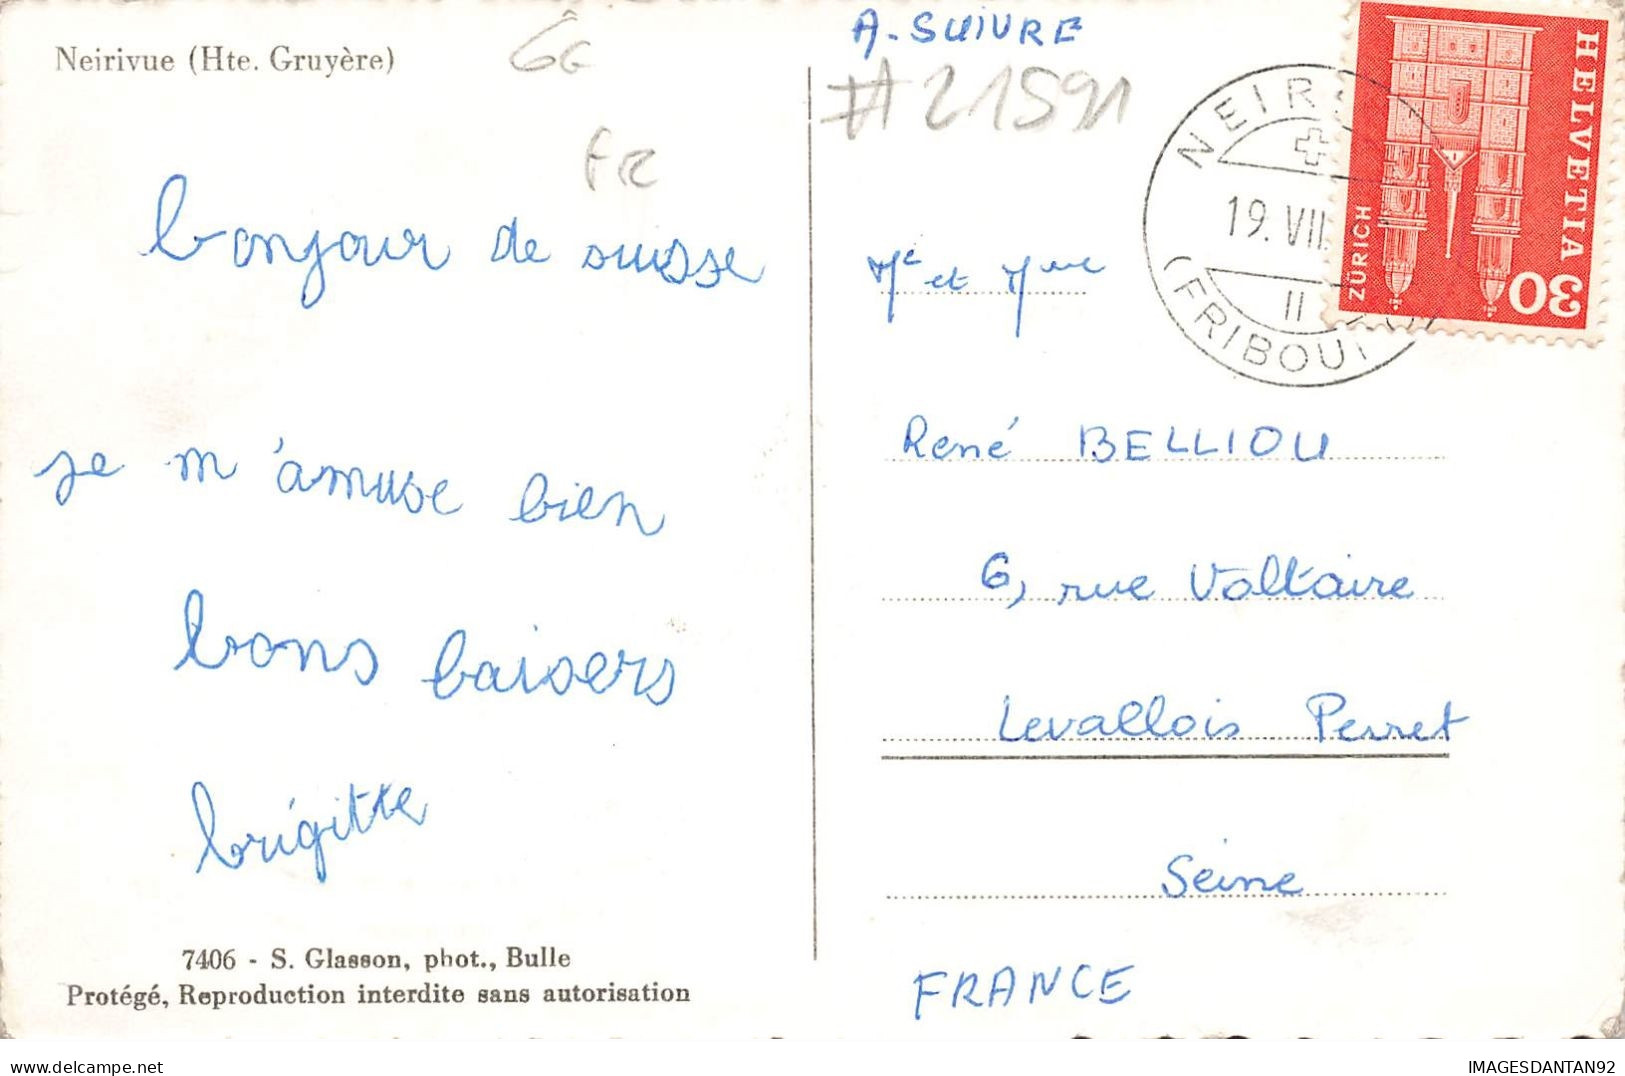 Neirivue (Hte. Gruyère)
GG
FR
bonjour de suisse
je m'amuse bien
bons baisers
brigitte
7406 - S. Glasson, phot., Bulle
Protégé, Reproduction interdite sans autorisation
A-SUIVRE
#21591
HELVETIA 30
ZÜRICH
NEIR
19. VII.
II
(FRIBOU
Mr et Mme
René BELLIOU
6, rue Voltaire
Levallois Perret
Seine
FRANCE
IMAGESDANTAN92